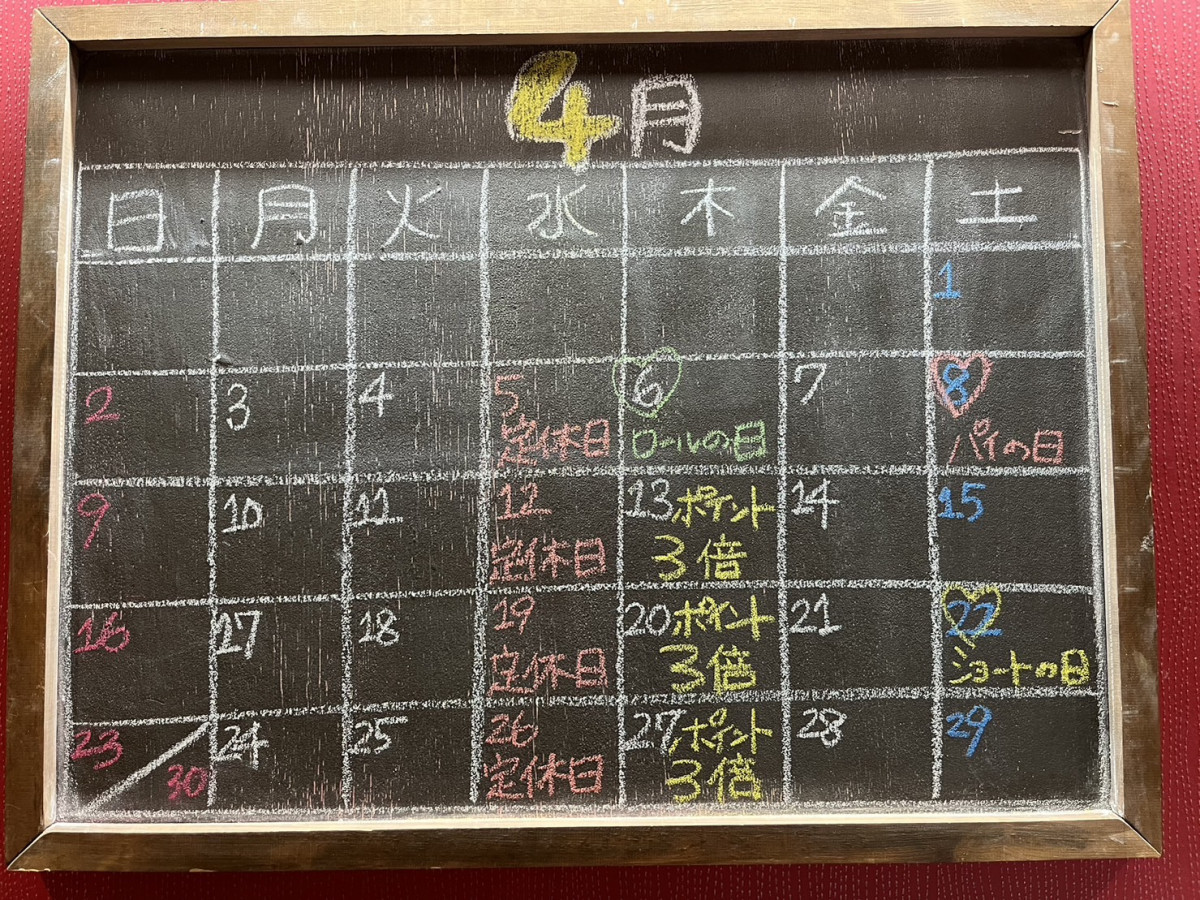 4月
日 月 火 水 木 金 土
1
2 3 4 5 6 7 8
定休日 ロールの日 パイの日
9 10 11 12 13 ポイント 14 15
定休日 3倍
16 17 18 19 20 ポイント 21 22
定休日 3倍 ショートの日
23 24 25 26 27 ポイント 28 29
30 定休日 3倍